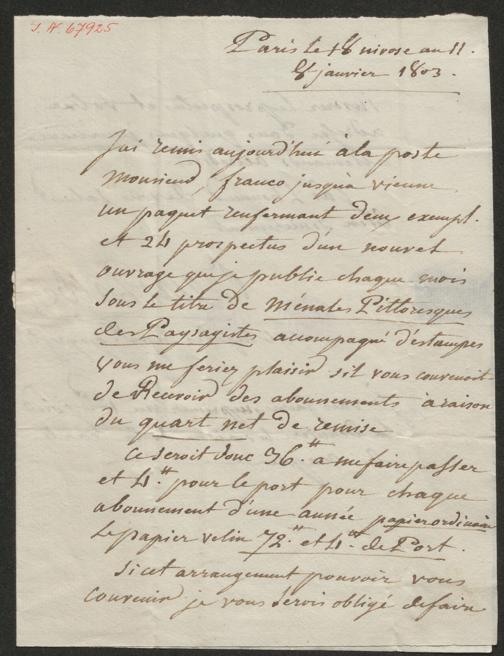 I.N. 67925
Paris le 18 nivose an 11.
8 janvier 1803.
J'ai remis aujourd'hui à la poste
Monsieur, franco jusqu'a vienne
un paquet renfermant deux exempl.
et 24 prospectus d'un nouvel
ouvrage que je publie chaque mois
sous le titre de Pittoresques
des Paysagistes accompagné d'estampes
vous me feriez plaisir s'il vous convenoit
de Recevoir des abonnements à raison
du quart net de remise
ce seroit donc 36.tt a me faire passer
et 4.tt pour le port pour chaque
abonnement d'une année papier ordinaire
le papier velin 72.tt et 4.tt de Port.
si cet arrangement pouvoir vous
convenir je vous serois obligé de faire